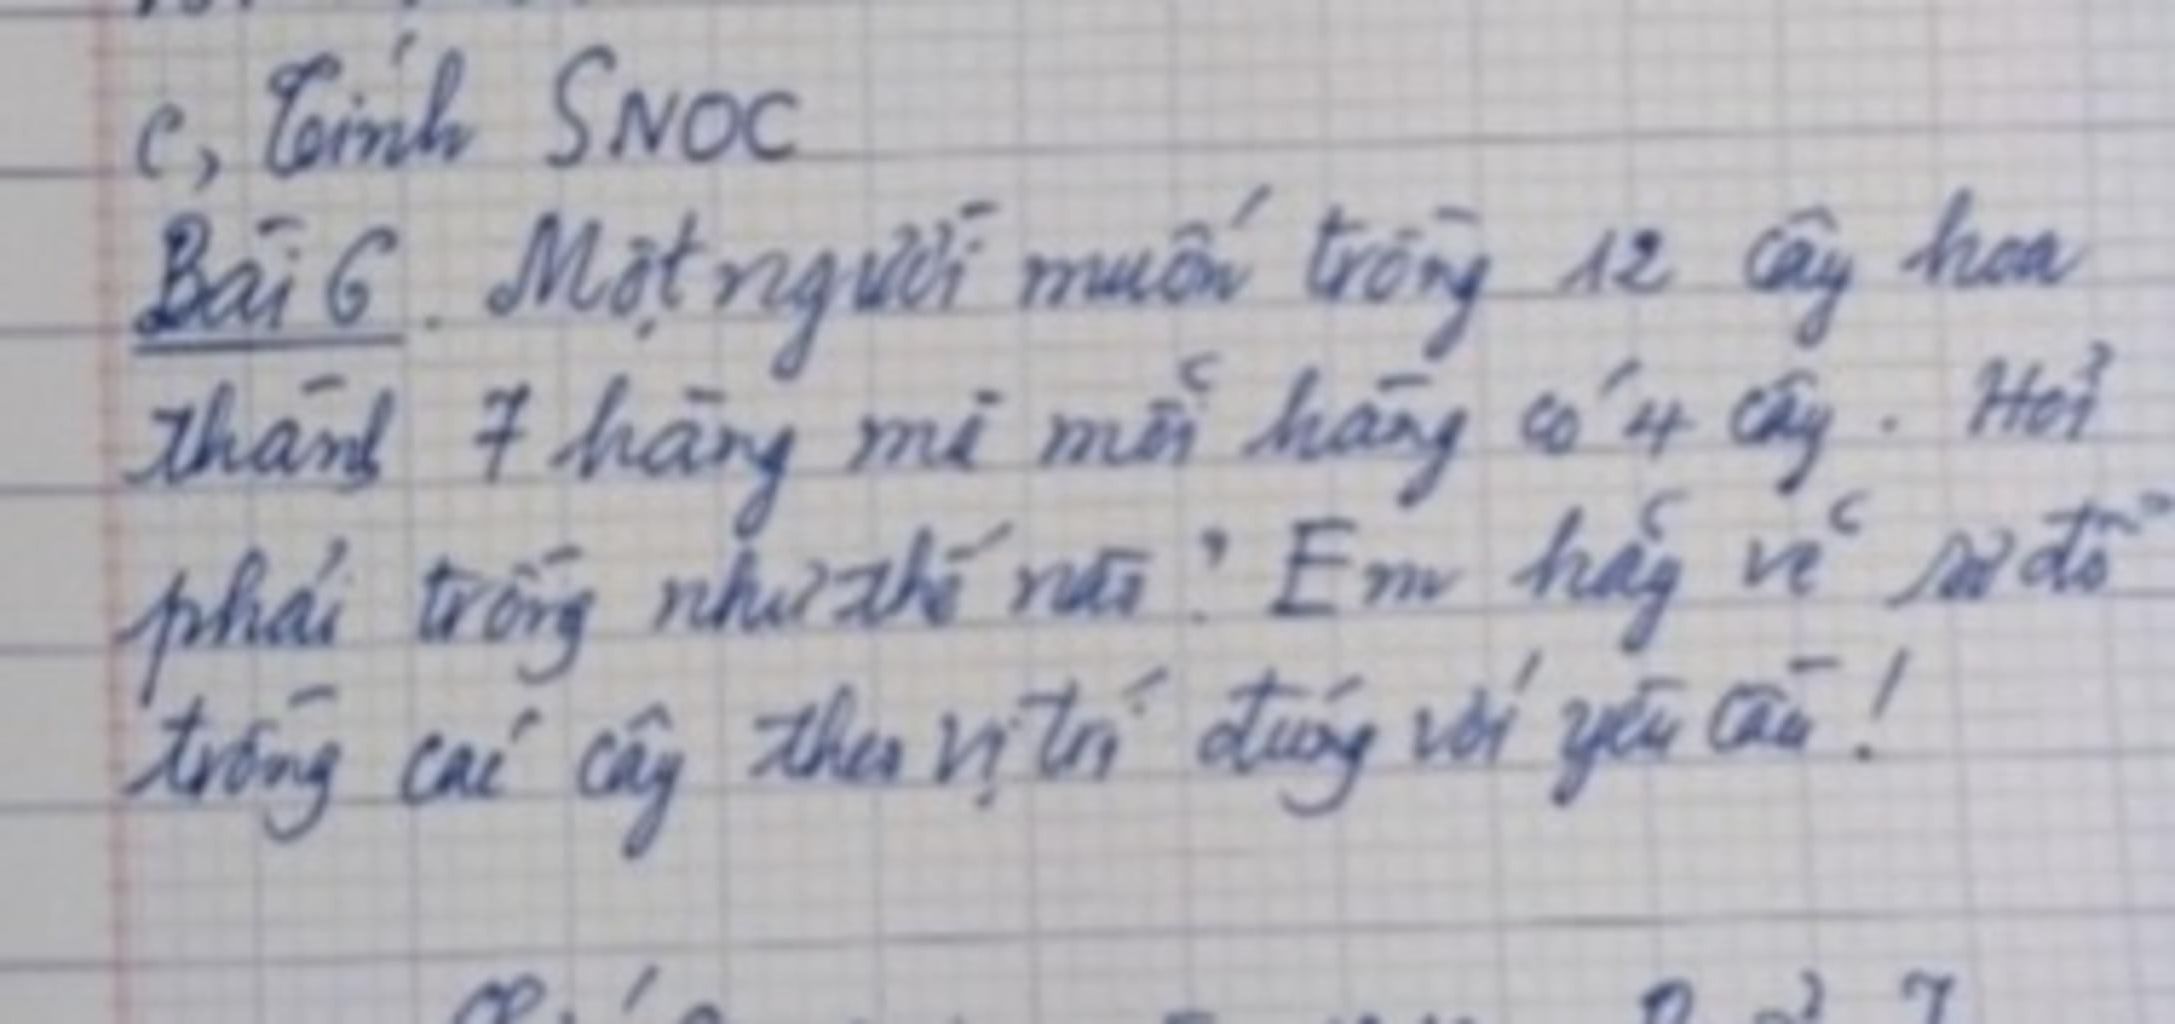 c, Tính SNOC
Bài 6. Một người muốn trồng 12 cây hoa
thành 7 hàng mà mỗi hàng có 4 cây. Hỏi
phải trồng như thế nào? Em hãy vẽ sơ đồ
trồng các cây theo vị trí đúng với yêu cầu!